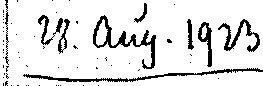 28. Aug. 1923